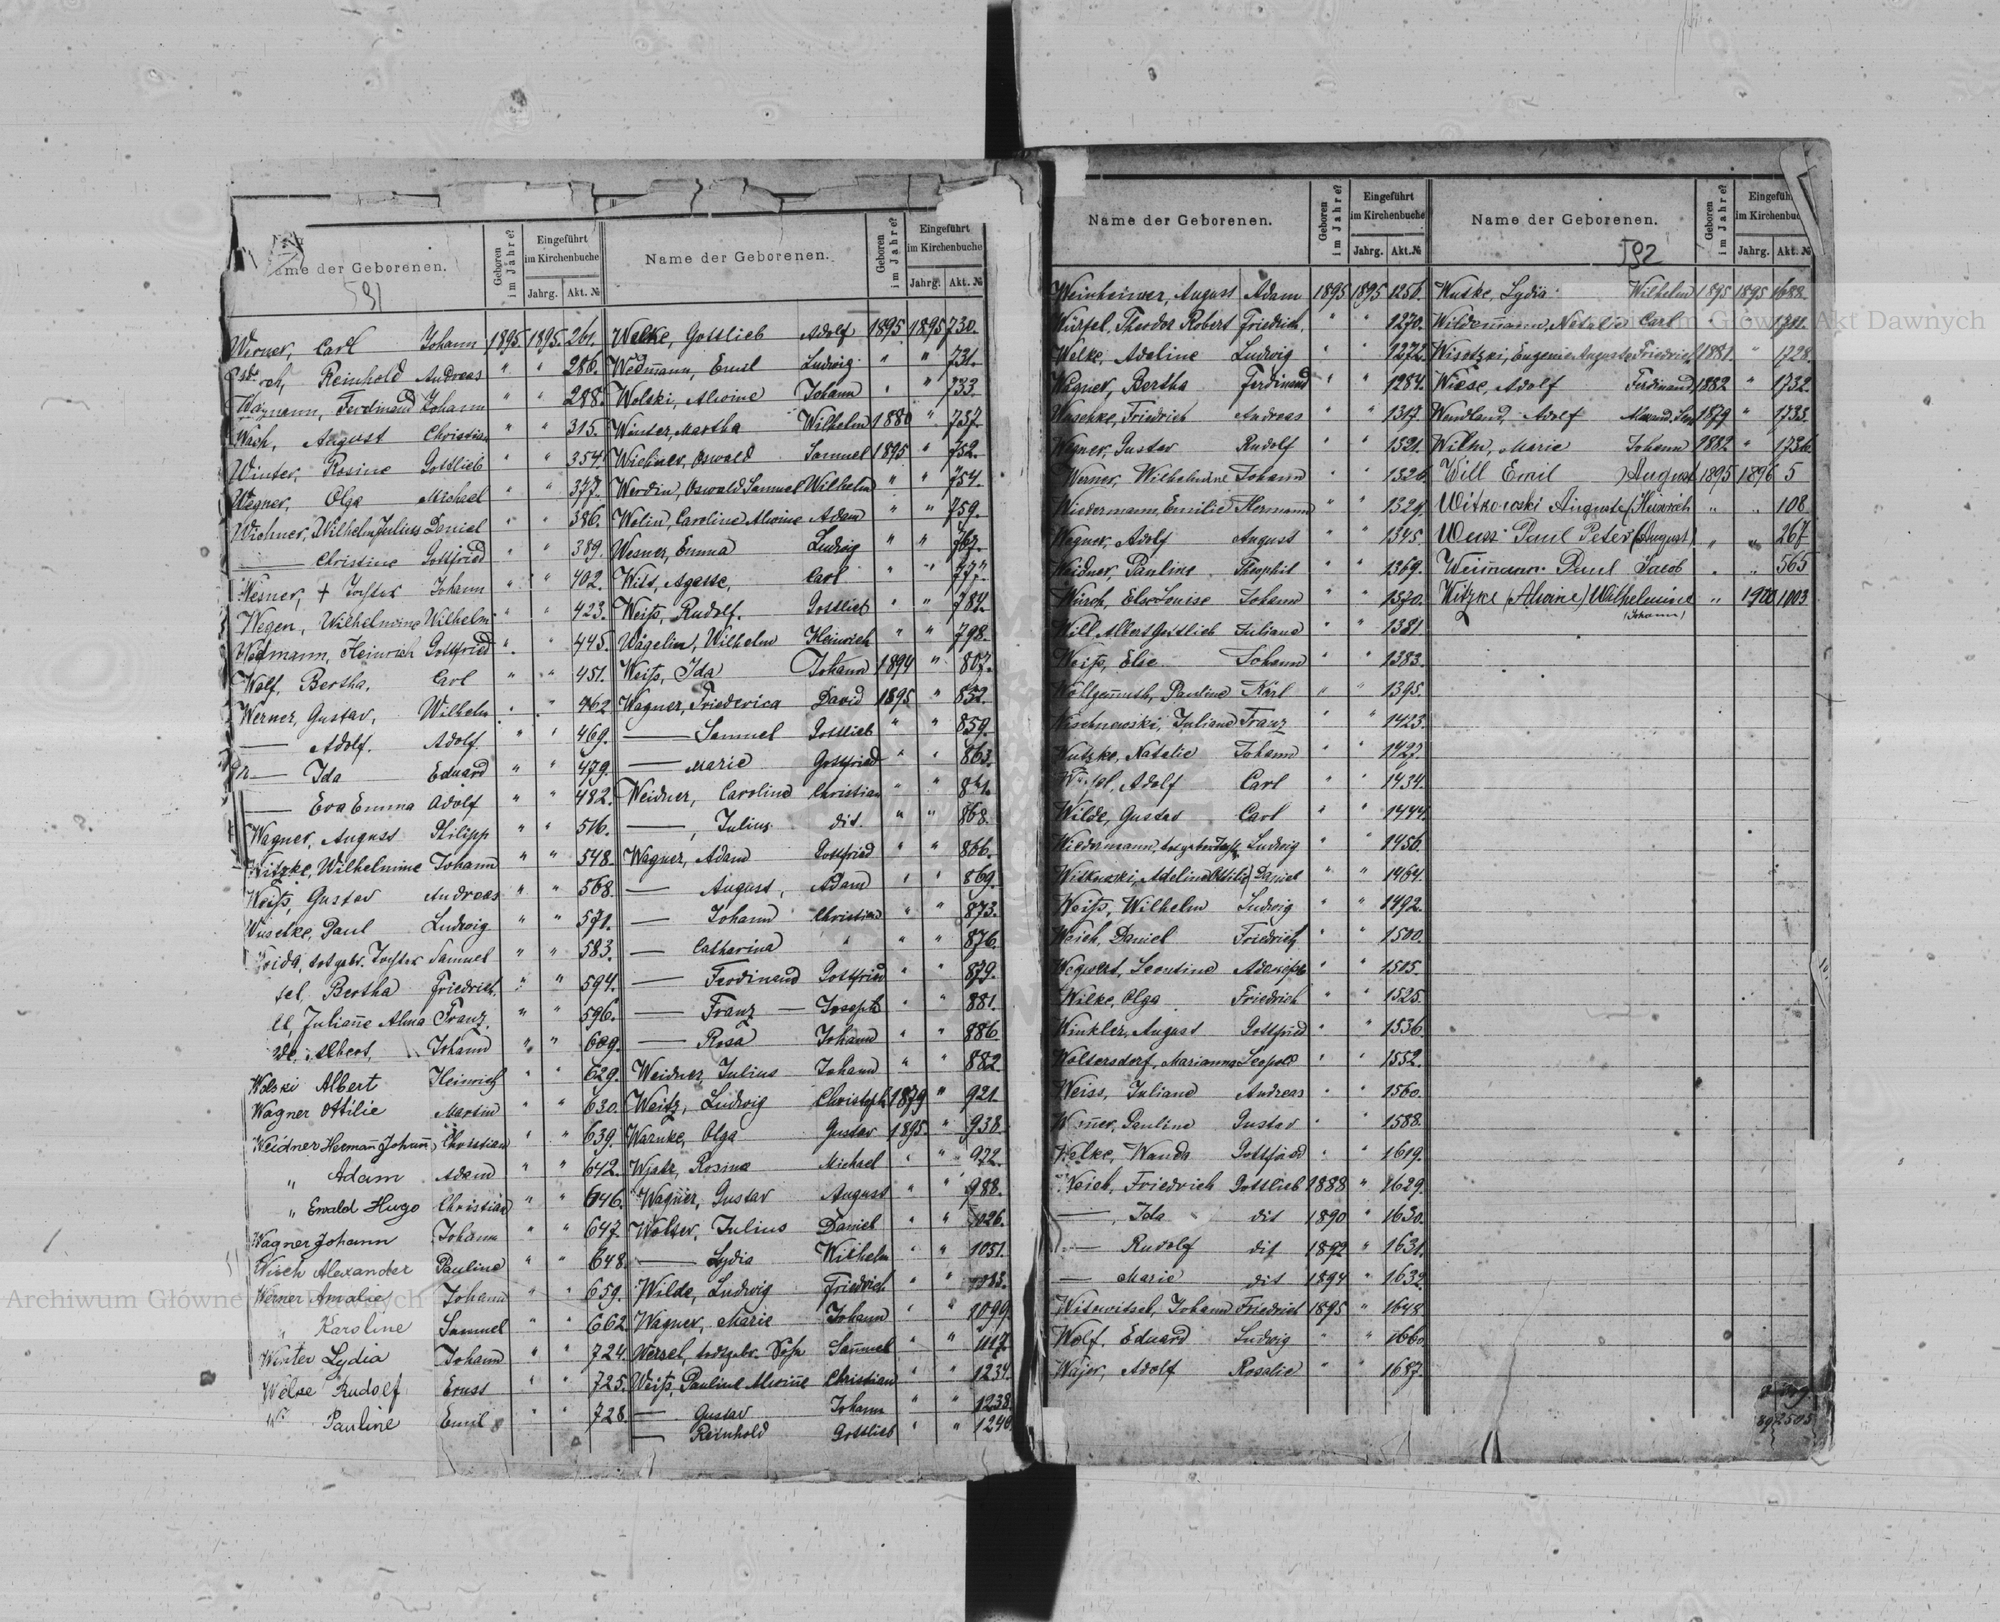 Name der Geborenen.
591
Geboren im Jahre?
Eingeführt im Kirchenbuche
Jahrg. Akt. №
Werner, Carl Johann 1895 1895 261.
Reinhold Andreas " " 286.
Ferdinand Johann " " 288.
Wach, August Christian " " 315.
Winter, Rosine Gottlieb " " 354.
Wegner, Olga Michael " " 377.
Wichner, Wilhelm Julius Daniel " " 386.
—— Christine Gottfried " " 389.
Wesner, † Tochter Johann " " 402.
Wegen, Wilhelmine Wilhelm " " 423.
Wedmann, Heinrich Gottfried " " 445.
Wolf, Bertha, Carl " " 451.
Werner, Gustav, Wilhelm " " 462
—— Adolf. Adolf. " " 469.
—— Ida Eduard " " 479.
—— Eva Emma Adolf " " 482.
Wagner, August Philipp " " 516.
Witzke, Wilhelmine Johann " " 548.
Weiß, Gustav Andreas " " 568.
Wuschke, Paul Ludwig " " 571.
todtgebr. Tochter Samuel " " 583.
sel, Bertha Friedrich. " " 594.
ll, Julianne Alma Franz. " " 596.
Albert, Johann " " 609.
Wolski Albert Heinrich " " 629.
Wagner Ottilie Martin " " 630.
Weidner Hermann Johann Christian " " 639.
" Adam Adam " " 642.
" Ewald Hugo Christian " " 646.
Wagner Johann Johann " " 647.
Wisch Alexander Pauline " " 648.
Werner Amalie Johann " " 659.
" Karoline Samuel " " 662
Winter Lydia Johann " " 724.
Welke Rudolf Ernst " " 725.
Pauline Emil " " 728
Name der Geborenen.
Geboren im Jahre?
Eingeführt im Kirchenbuche
Jahrg. Akt. №
Welke, Gottlieb Adolf 1895 1895 730.
Wedmann, Emil Ludwig " " 731.
Wolski, Alwine Johann " " 733.
Winter, Martha Wilhelm 1880 " 737.
Wichner, Oswald Samuel 1895 " 752.
Werdin, Oswald Samuel Wilhelm " " 754.
Welin, Caroline Alwine Adam " " 759.
Wesner, Emma Ludwig " " 767.
Wilt, Agathe, Carl " " 777.
Weiß, Rudolf. Gottlieb " " 784.
Wägelin, Wilhelm Heinrich " " 798.
Weiß, Ida Johann 1894 " 807.
Wagner, Friederica David 1895 " 852.
—— Samuel Gottlieb " " 859.
—— Marie Gottfried " " 863.
Weidner, Caroline Christian " "
——, Julius dit. " " 868.
Wagner, Adam Gottfried " " 866.
—— August, Adam " " 869.
—— Johann Christian " " 873.
—— Catharina " " " 876.
—— Ferdinand Gottfried " " 879.
—— Franz — Joseph " " 881.
—— Rosa Johann " " 886.
Weidner Julius Johann " " 882
Weitz, Ludwig Christoph 1879 " 921
Warnke, Olga Gustav 1895 " 938.
Wiatr, Rosina Michael " " 972.
Wagner, Gustav August " " 988.
Wolter, Julius Daniel " " 1026.
—— Lydia Wilhelm " " 1051.
Wilde, Ludwig Friedrich " " 1083.
Wagner, Marie Johann " " 1099
Wersel, todtgebr. Sohn Samuel " " 1117.
Weiß, Pauline Alwine Christian " " 1234.
—— Gustav Johann " " 1238.
—— Reinhold Gottlieb " " 1240.
Name der Geborenen.
Geboren im Jahre?
Eingeführt im Kirchenbuche
Jahrg. Akt. №
Weinheimer, August Adam 1895 1895 1256.
Würfel, Theodor Robert Friedrich. " " 1270.
Welke, Adeline Ludwig " " 1272.
Wagner, Bertha Ferdinand " " 1284.
Waschke, Friedrich Andreas " " 1317.
Wagner, Gustav Rudolf " " 1321.
Werner, Wilhelmine Johann " " 1326
Wiedermann, Emilie Hermann " " 1329
Wagner, Adolf August " " 1345.
Weidner, Pauline Theophil " " 1369.
Würch, Else Louise Johann " " 1370.
Will, Albert Gottlieb Juliane " " 1381
Weiß, Else Johann " " 1383.
Wollgemuth, Pauline Karl " " 1395.
Wischnewski, Juliane Franz " " 1423.
Wutzke, Natalie Johann " " 1427.
Adolf Carl " " 1434.
Wilde, Gustav Carl " " 1444.
Wiedermann, Ludwig " " 1456.
Witkowski, Adeline Ottilie Daniel " " 1464.
Weiß, Wilhelm Ludwig " " 1492.
Weich, Daniel Friedrich " " 1500.
Wegwert, Leontine " " 1515.
Wilke, Olga Friedrich " " 1525.
Winkler, August Gottfried " " 1536
Woltersdorf, Marianna Leopold " " 1552.
Weiss, Juliane Andreas " " 1560.
Pauline Gustav " " 1588.
Welke, Wanda Gottfried " " 1619.
Weich, Friedrich Gottlieb 1888 " 1629.
——, Ida dit 1890 " 1630.
—— Rudolf dit 1892 " 1631.
—— Marie dit 1894 " 1632.
Johann Friedrich 1895 " 1648.
Wolf, Eduard Ludwig " " 1660.
Wajer, Adolf Rosalie " " 1687.
Name der Geborenen.
592
Geboren im Jahre?
Eingeführt im Kirchenbuche
Jahrg. Akt. №
Wutke, Lydia Wilhelm 1895 1895 1688.
Wildemann, Natalie Carl " " 1711.
Wisotzki, Eugenie Auguste Friedrich 1881 " 1728.
Wiese, Adolf Ferdinand, 1882 " 1732.
Wendland, Adolf 1879 " 1733.
Wilm, Marie Johann 1882 " 1736.
Will Emil (August) 1895 1896 5
Witkowski Auguste (Heinrich " " 108
Paul Peter (August) " " 267
Weimann Paul Jacob " " 565
Witzke (Alwine) Wilhelmine " 1900 1003
(Johann)
Archiwum Główne Akt Dawnych
Archiwum Główne Akt Dawnych